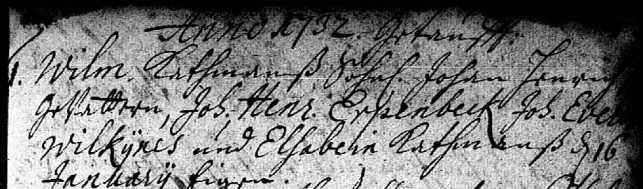 Anno 1732. Getaufft.
1. Wilm. Kathmanß Sohn. Johan Henrich
Gevattern, Joh. Henr. Erpenbeck Joh. Ever
Wilkÿnes und Elsabein Kathmanß d 16
Januarÿ eigen.